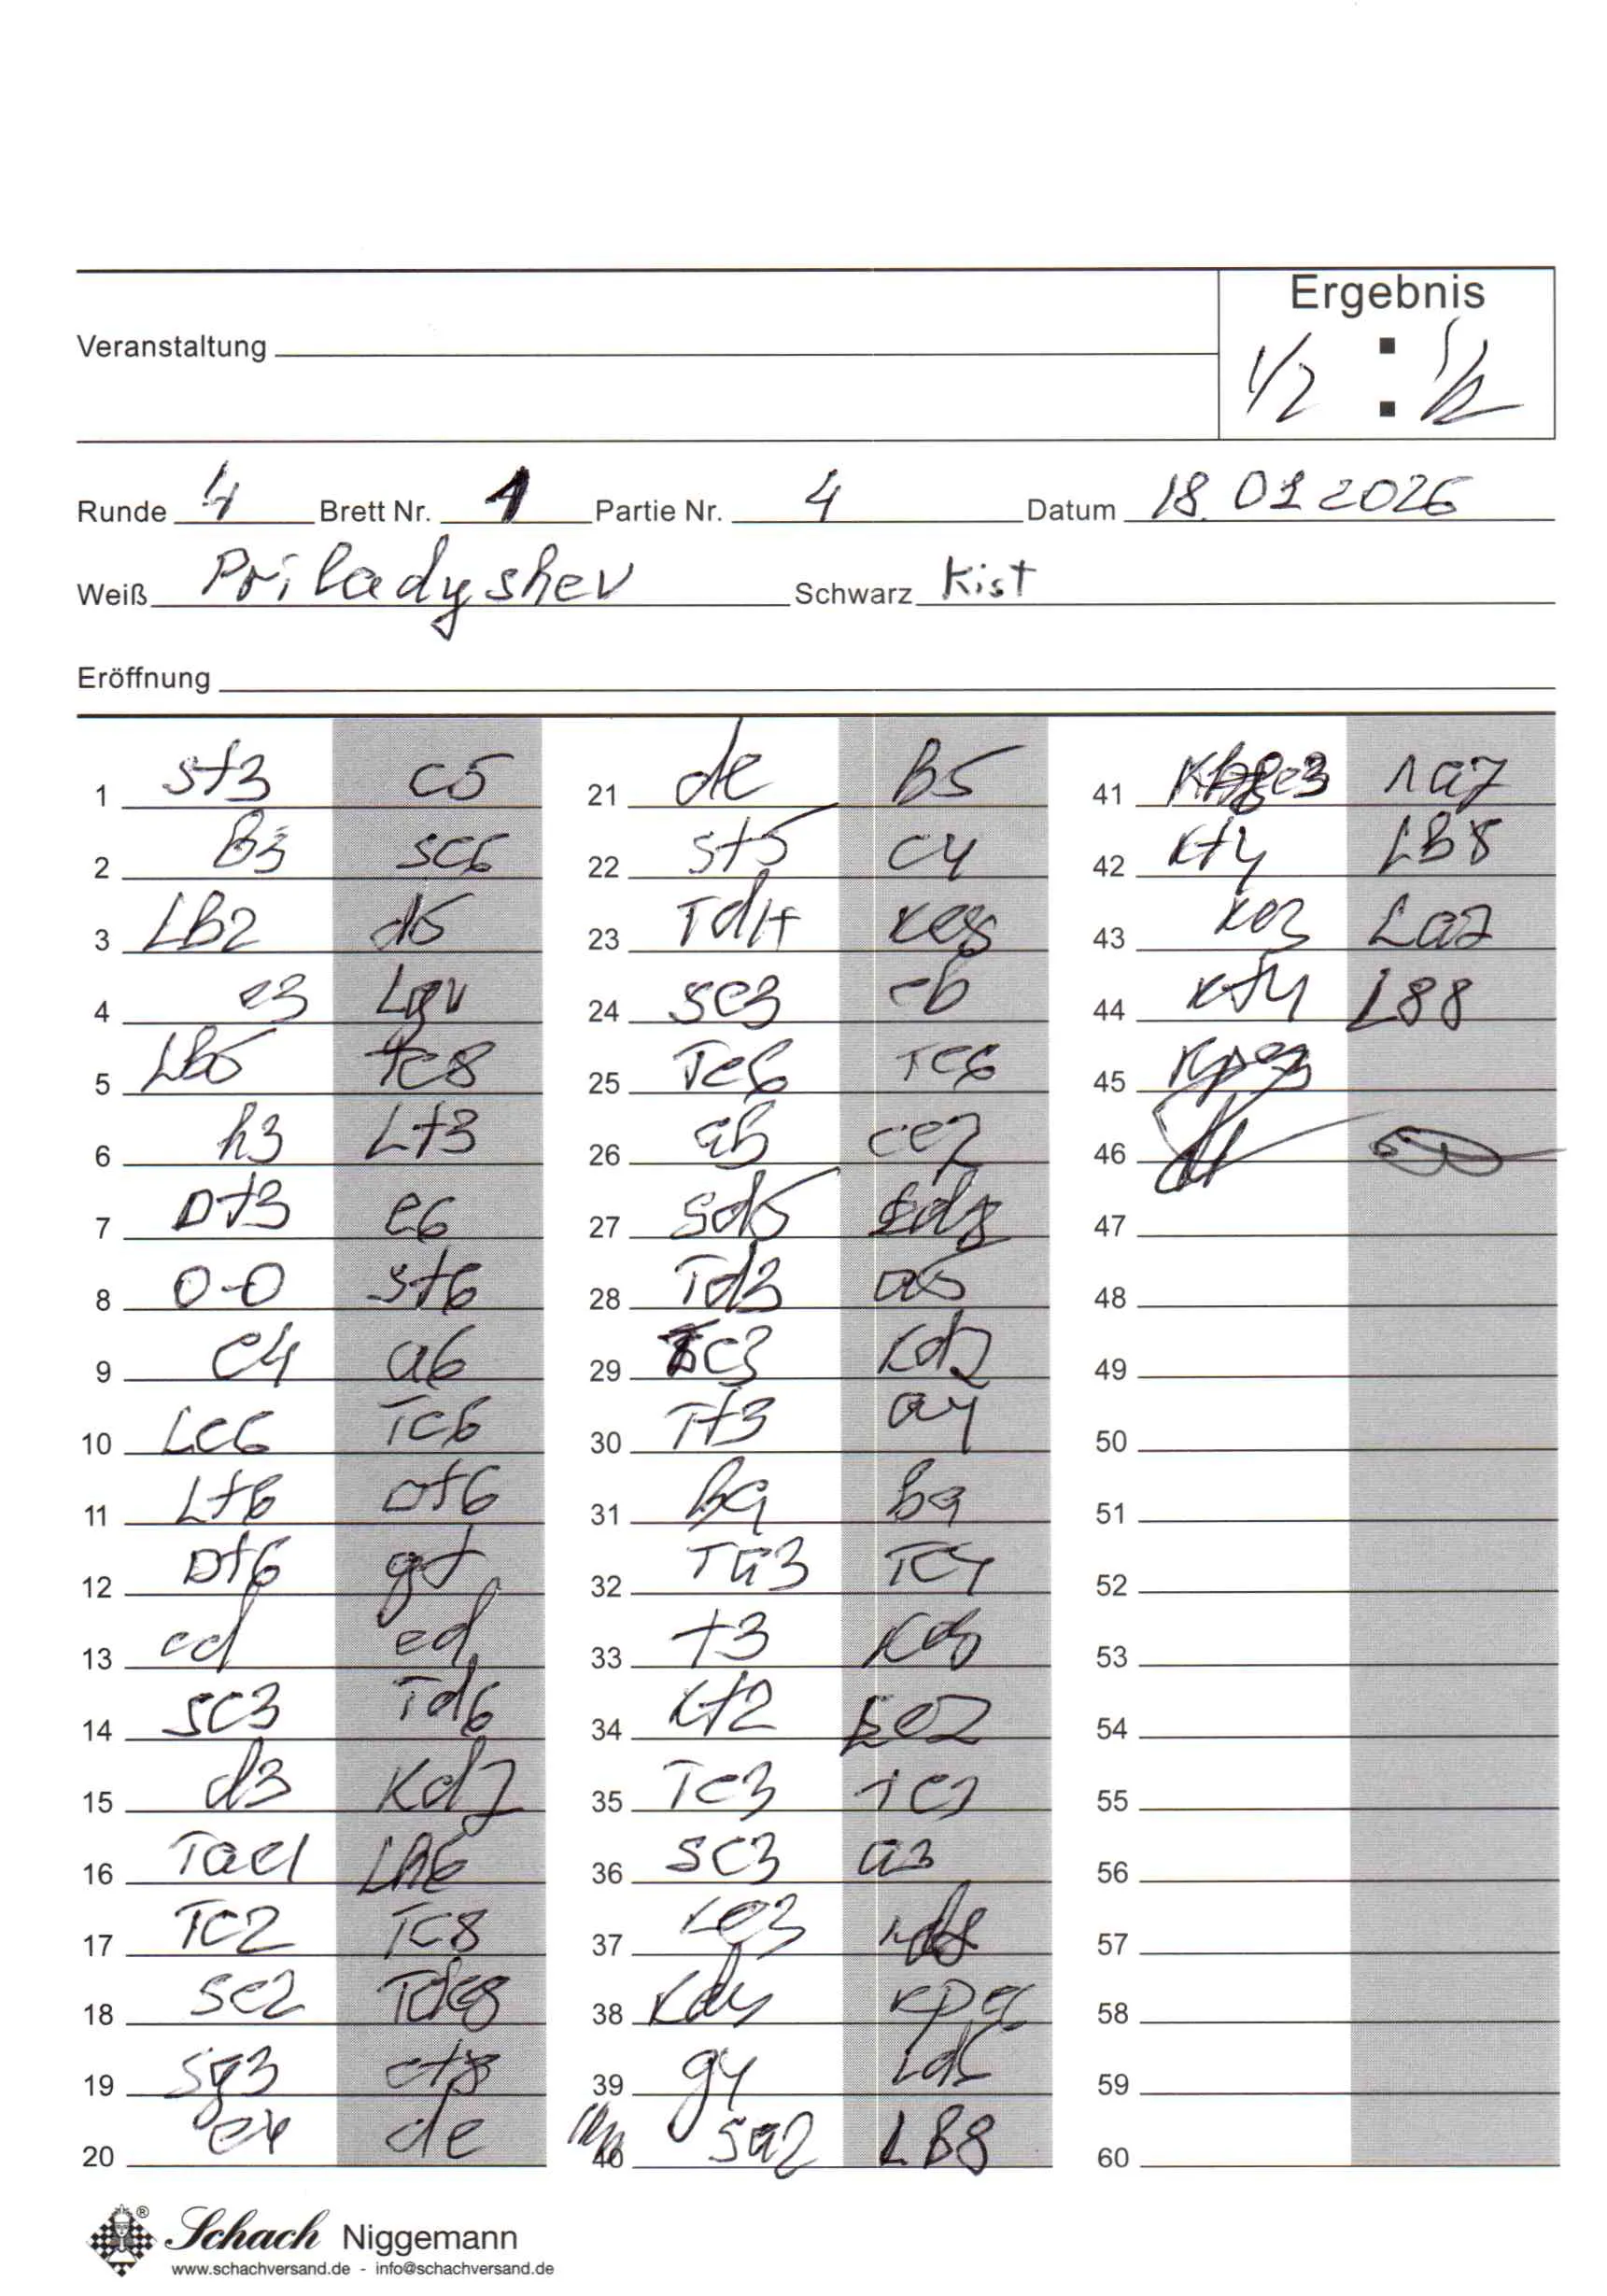 Ergebnis
Veranstaltung
1/2 : 1/2
Runde 4 Brett Nr. 1 Partie Nr. 4 Datum 18.01 2026
Weiß Priladyshev Schwarz Kist
Eröffnung
1 Sf3 c5
2 B3 Sc6
3 LB2 d5
4 e3 Lg4
5 LB5 Tc8
6 h3 Lf3
7 Df3 e6
8 0-0 Sf6
9 c4 a6
10 Lc6 Tc6
11 Lf6 Df6
12 Df6 gf
13 cd ed
14 Sc3 Td6
15 d3 Kd7
16 Tac1 Lh6
17 Tc2 Tc8
18 Se2
19 Sg3
20 e4 de
21 de B5
22 Sf5 c4
23 Td1+ Ke8
24 Se3 cb
25 Tc6 Tc6
26 ab
27 Sd5
28 Td3 a5
29 Tc3 Kd7
30 Tf3 a4
31 Ba Ba
32 Ta3 Tc4
33 f3
34 Kf2
35 Tc3
36 Sc3 a3
37 Ke3
38 Kd4
39 g4 Ld6
40 Sa2 LB8
41 La7
42 Kf4 LB8
43 Ke3 La7
44 Kf4 LB8
45 Kpe3
46
47
48
49
50
51
52
53
54
55
56
57
58
59
60
Schach Niggemann
www.schachversand.de - info@schachversand.de